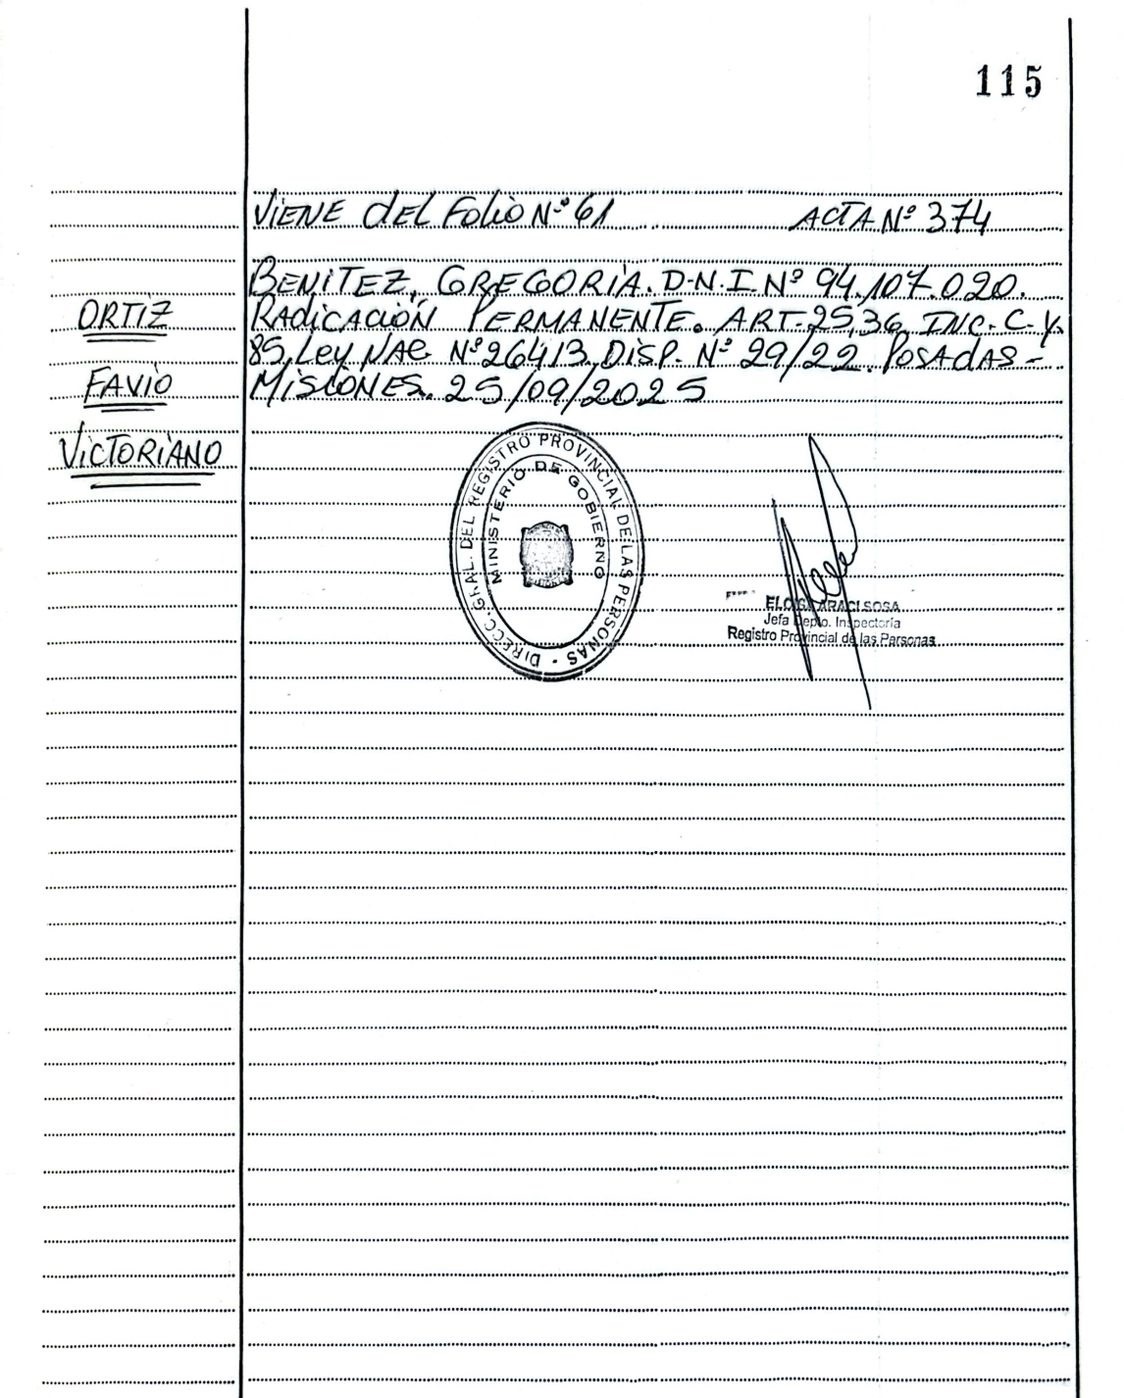 115
VIENE DEL FOLIO Nº 61 ACTA Nº 374
BENITEZ, GREGORIA. D.N.I. Nº 94.107.020.
ORTIZ
RADICACIÓN PERMANENTE. ART. 25, 36 INC. C. Y.
85, LEY NAC Nº 26413. DISP. Nº 29/22. POSADAS -
FAVIO
MISIONES. 25/09/2025
VICTORIANO
DIRECC. GRAL. DEL REGISTRO PROVINCIAL DE LAS PERSONAS -
MINISTERIO DE GOBIERNO
ELOISA ARACI SOSA
Jefa Depto. Inspectoría
Registro Provincial de las Personas